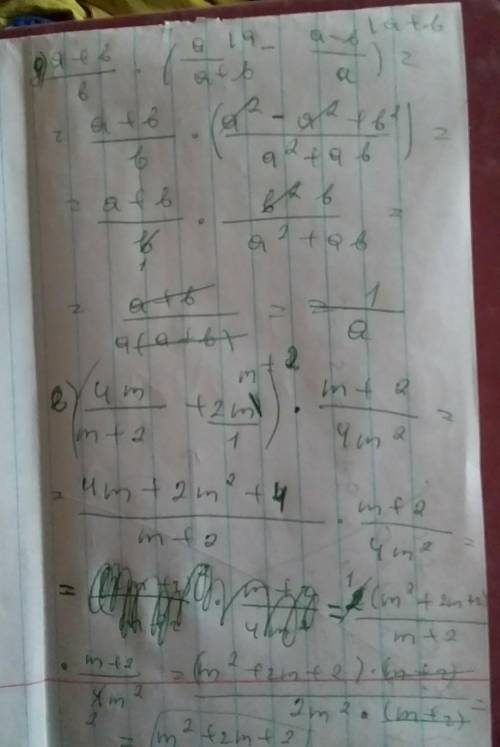 д) a+b/b · (a/a+b |a - a-b/a |a+b) =
= a+b/b · (a² - a² + b²/a² + ab) =
= a+b/b 1 · b² b/a² + ab =
= a+b/a(a+b) = = 1/a
e) (4m/m+2 + 2m/1 \m+2) · m+2/4m² =
= 4m + 2m² + 4/m+2 · m+2/4m² =
= 1 2(m² + 2m + 2)/m+2
· m+2/4m² 2 = (m² + 2m + 2) · (m+2)/2m² · (m+2) =
= m² + 2m + 2